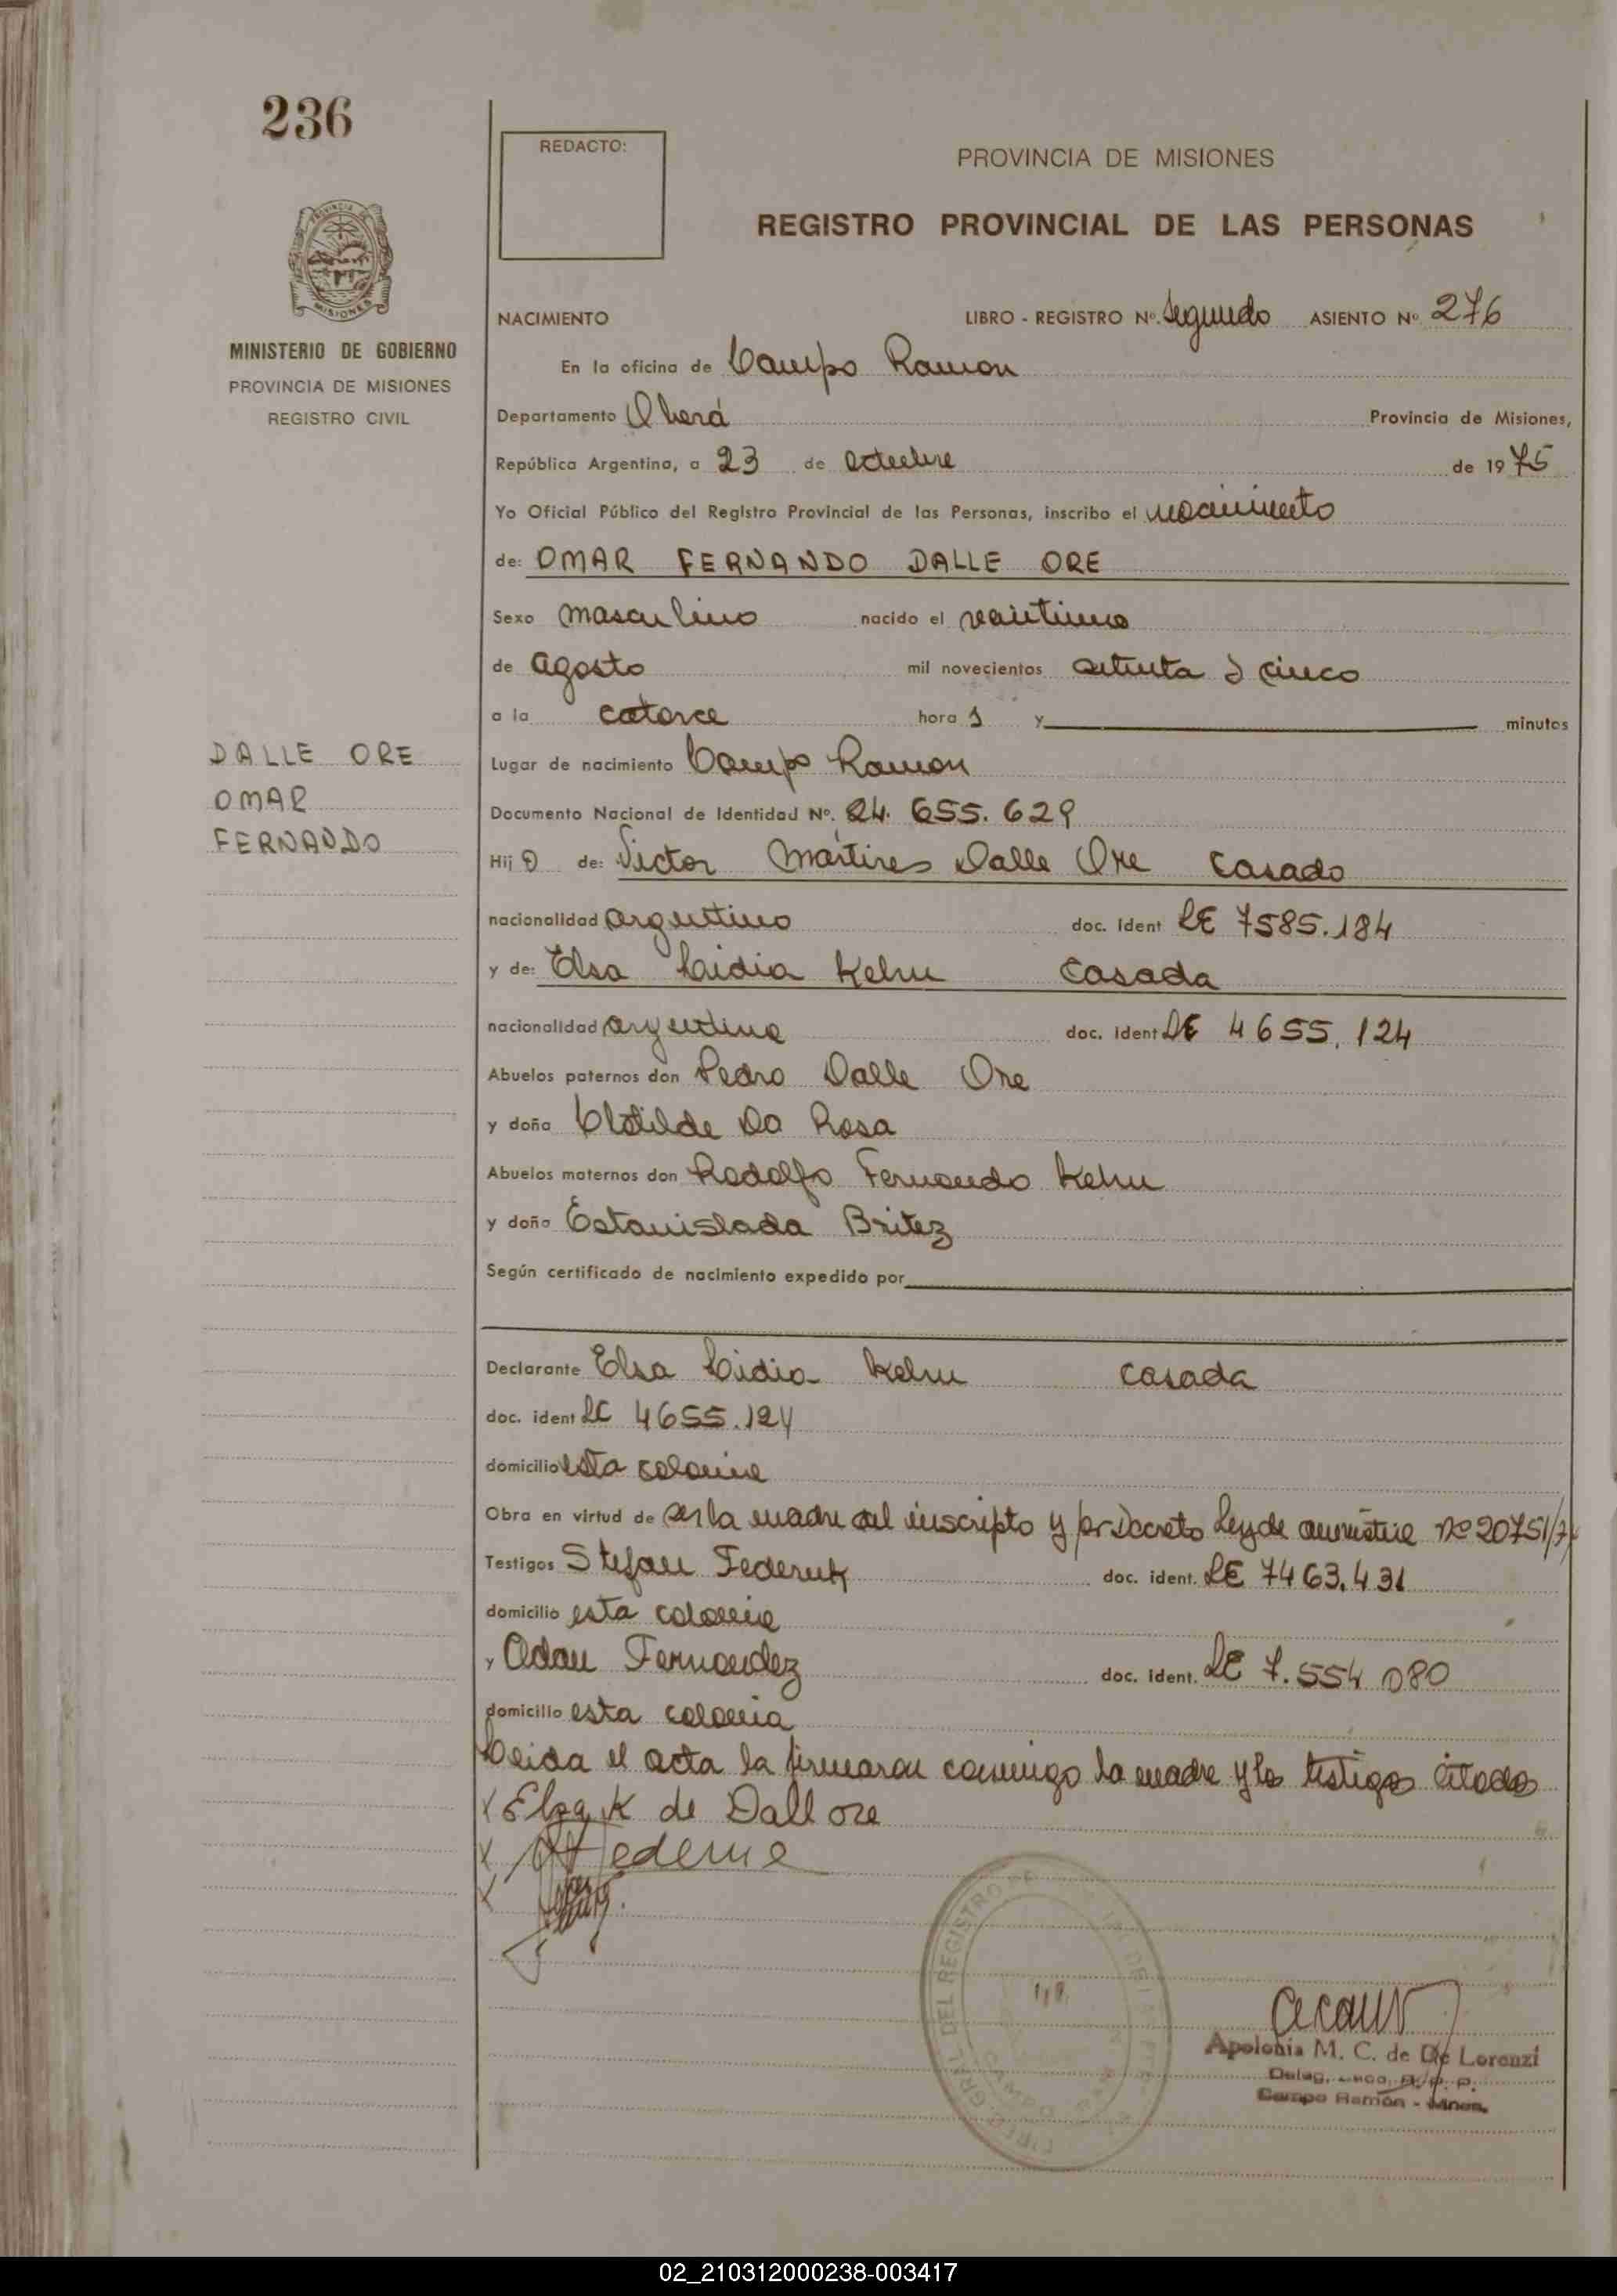 236
REDACTO:
PROVINCIA DE MISIONES
REGISTRO PROVINCIAL DE LAS PERSONAS
MINISTERIO DE GOBIERNO
PROVINCIA DE MISIONES
REGISTRO CIVIL
NACIMIENTO LIBRO - REGISTRO Nº. Segundo ASIENTO Nº 276
En la oficina de Campo Ramon
Departamento Oberá Provincia de Misiones,
República Argentina, a 23 de octubre de 1975
Yo Oficial Público del Registro Provincial de las Personas, inscribo el nacimiento
de: OMAR FERNANDO DALLE ORE
Sexo masculino nacido el veintiuno
de agosto mil novecientos setenta y cinco
a la catorce hora s y minutos
DALLE ORE
OMAR
FERNANDO
Lugar de nacimiento Campo Ramon
Documento Nacional de Identidad Nº. 24.655.629
Hijo de: Victor Mártires Dalle Ore casado
nacionalidad argentino doc. ident LE 7585.184
y de: Elsa Lidia Kehn casada
nacionalidad argentina doc. ident LE 4655.124
Abuelos paternos don Pedro Dalle Ore
y doña Clotilde Da Rosa
Abuelos maternos don Rodolfo Fernando Kehn
y doña Estanislada Britez
Según certificado de nacimiento expedido por
Declarante Elsa Lidia Kehn casada
doc. ident LC 4655.124
domicilio esta colonia
Obra en virtud de ser la madre del inscripto y por Decreto Ley de amnistia Nº 20751/
Testigos Stefan Federuk doc. ident. LE 7463.431
domicilio esta colonia
y Adan Fernandez doc. ident. LE 7.554 080
domicilio esta colonia
Leida el acta la firmaron conmigo la madre y los testigos citados
x Elsa K de Dall ore
x
x
Apolonia M. C. de De Lorenzi
Campo Ramón - Mnes.
02_210312000238-003417